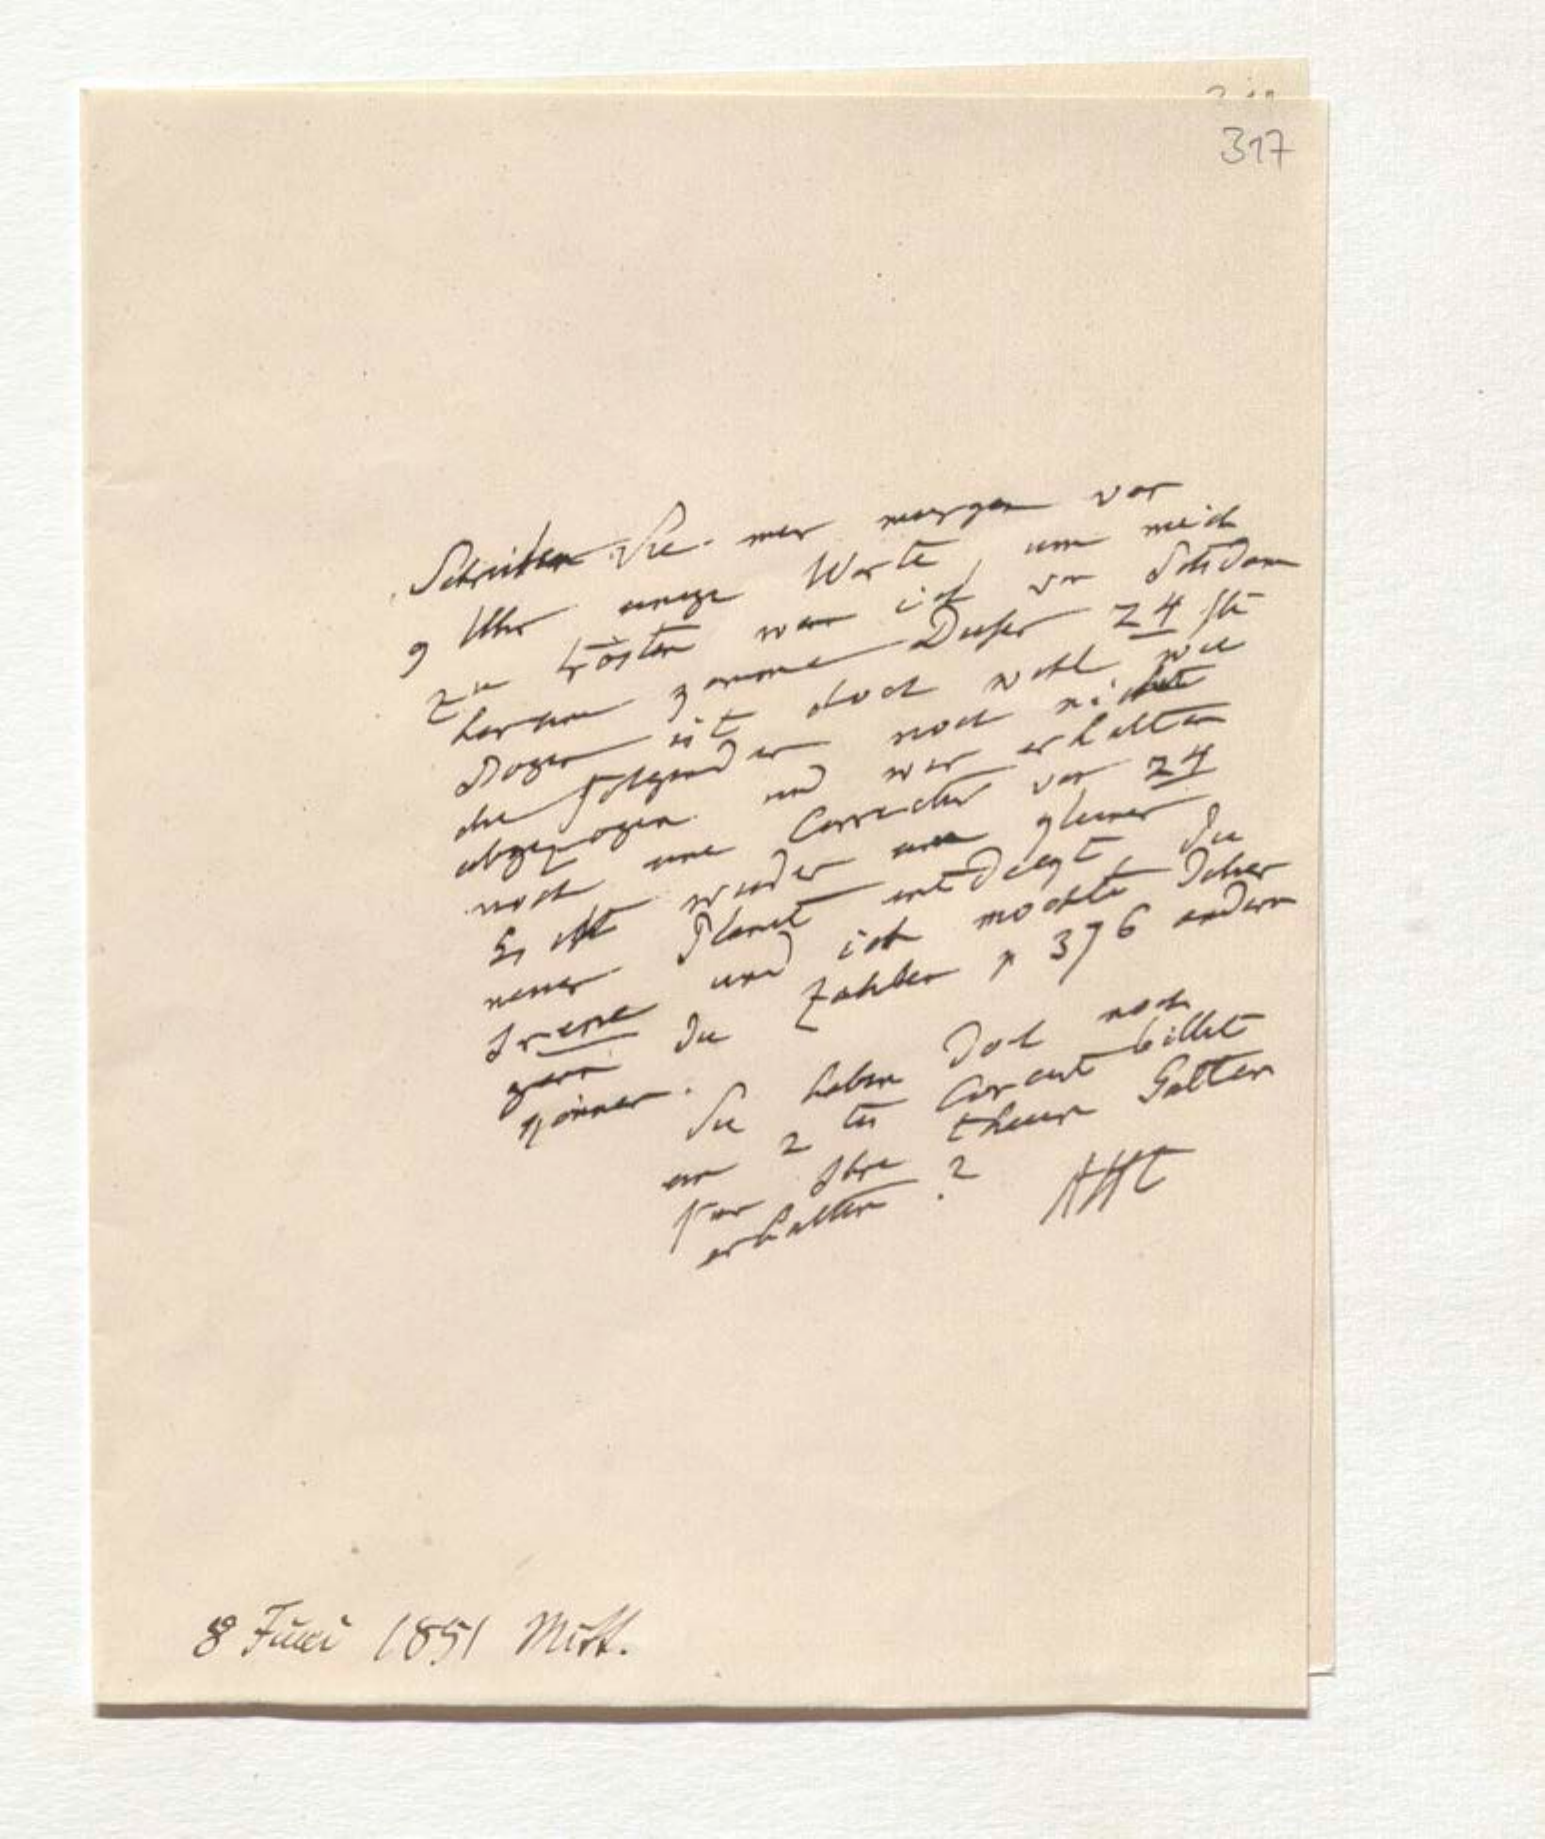 317
Schreiben Sie mir morgen vor
9 Uhr einige Worte, um mich
zu trösten wen ich von Potsdam
herein komme Dieser 24ste
Bogen ist doch wohl wie
die folgenden noch nicht
abgezogen und wir erhalten
noch eine Correctur von 24
Es ist wieder ein kleiner
neuer Planet entdeckt, die
Irene und ich möchte daher
gern die Zahlen p 376 ändern
können.
Sie haben doch noch
ein 2tes Concertbillet
für Ihre theure Gattin
erhalten?
AHt
8 Juni 1851 Mitt.